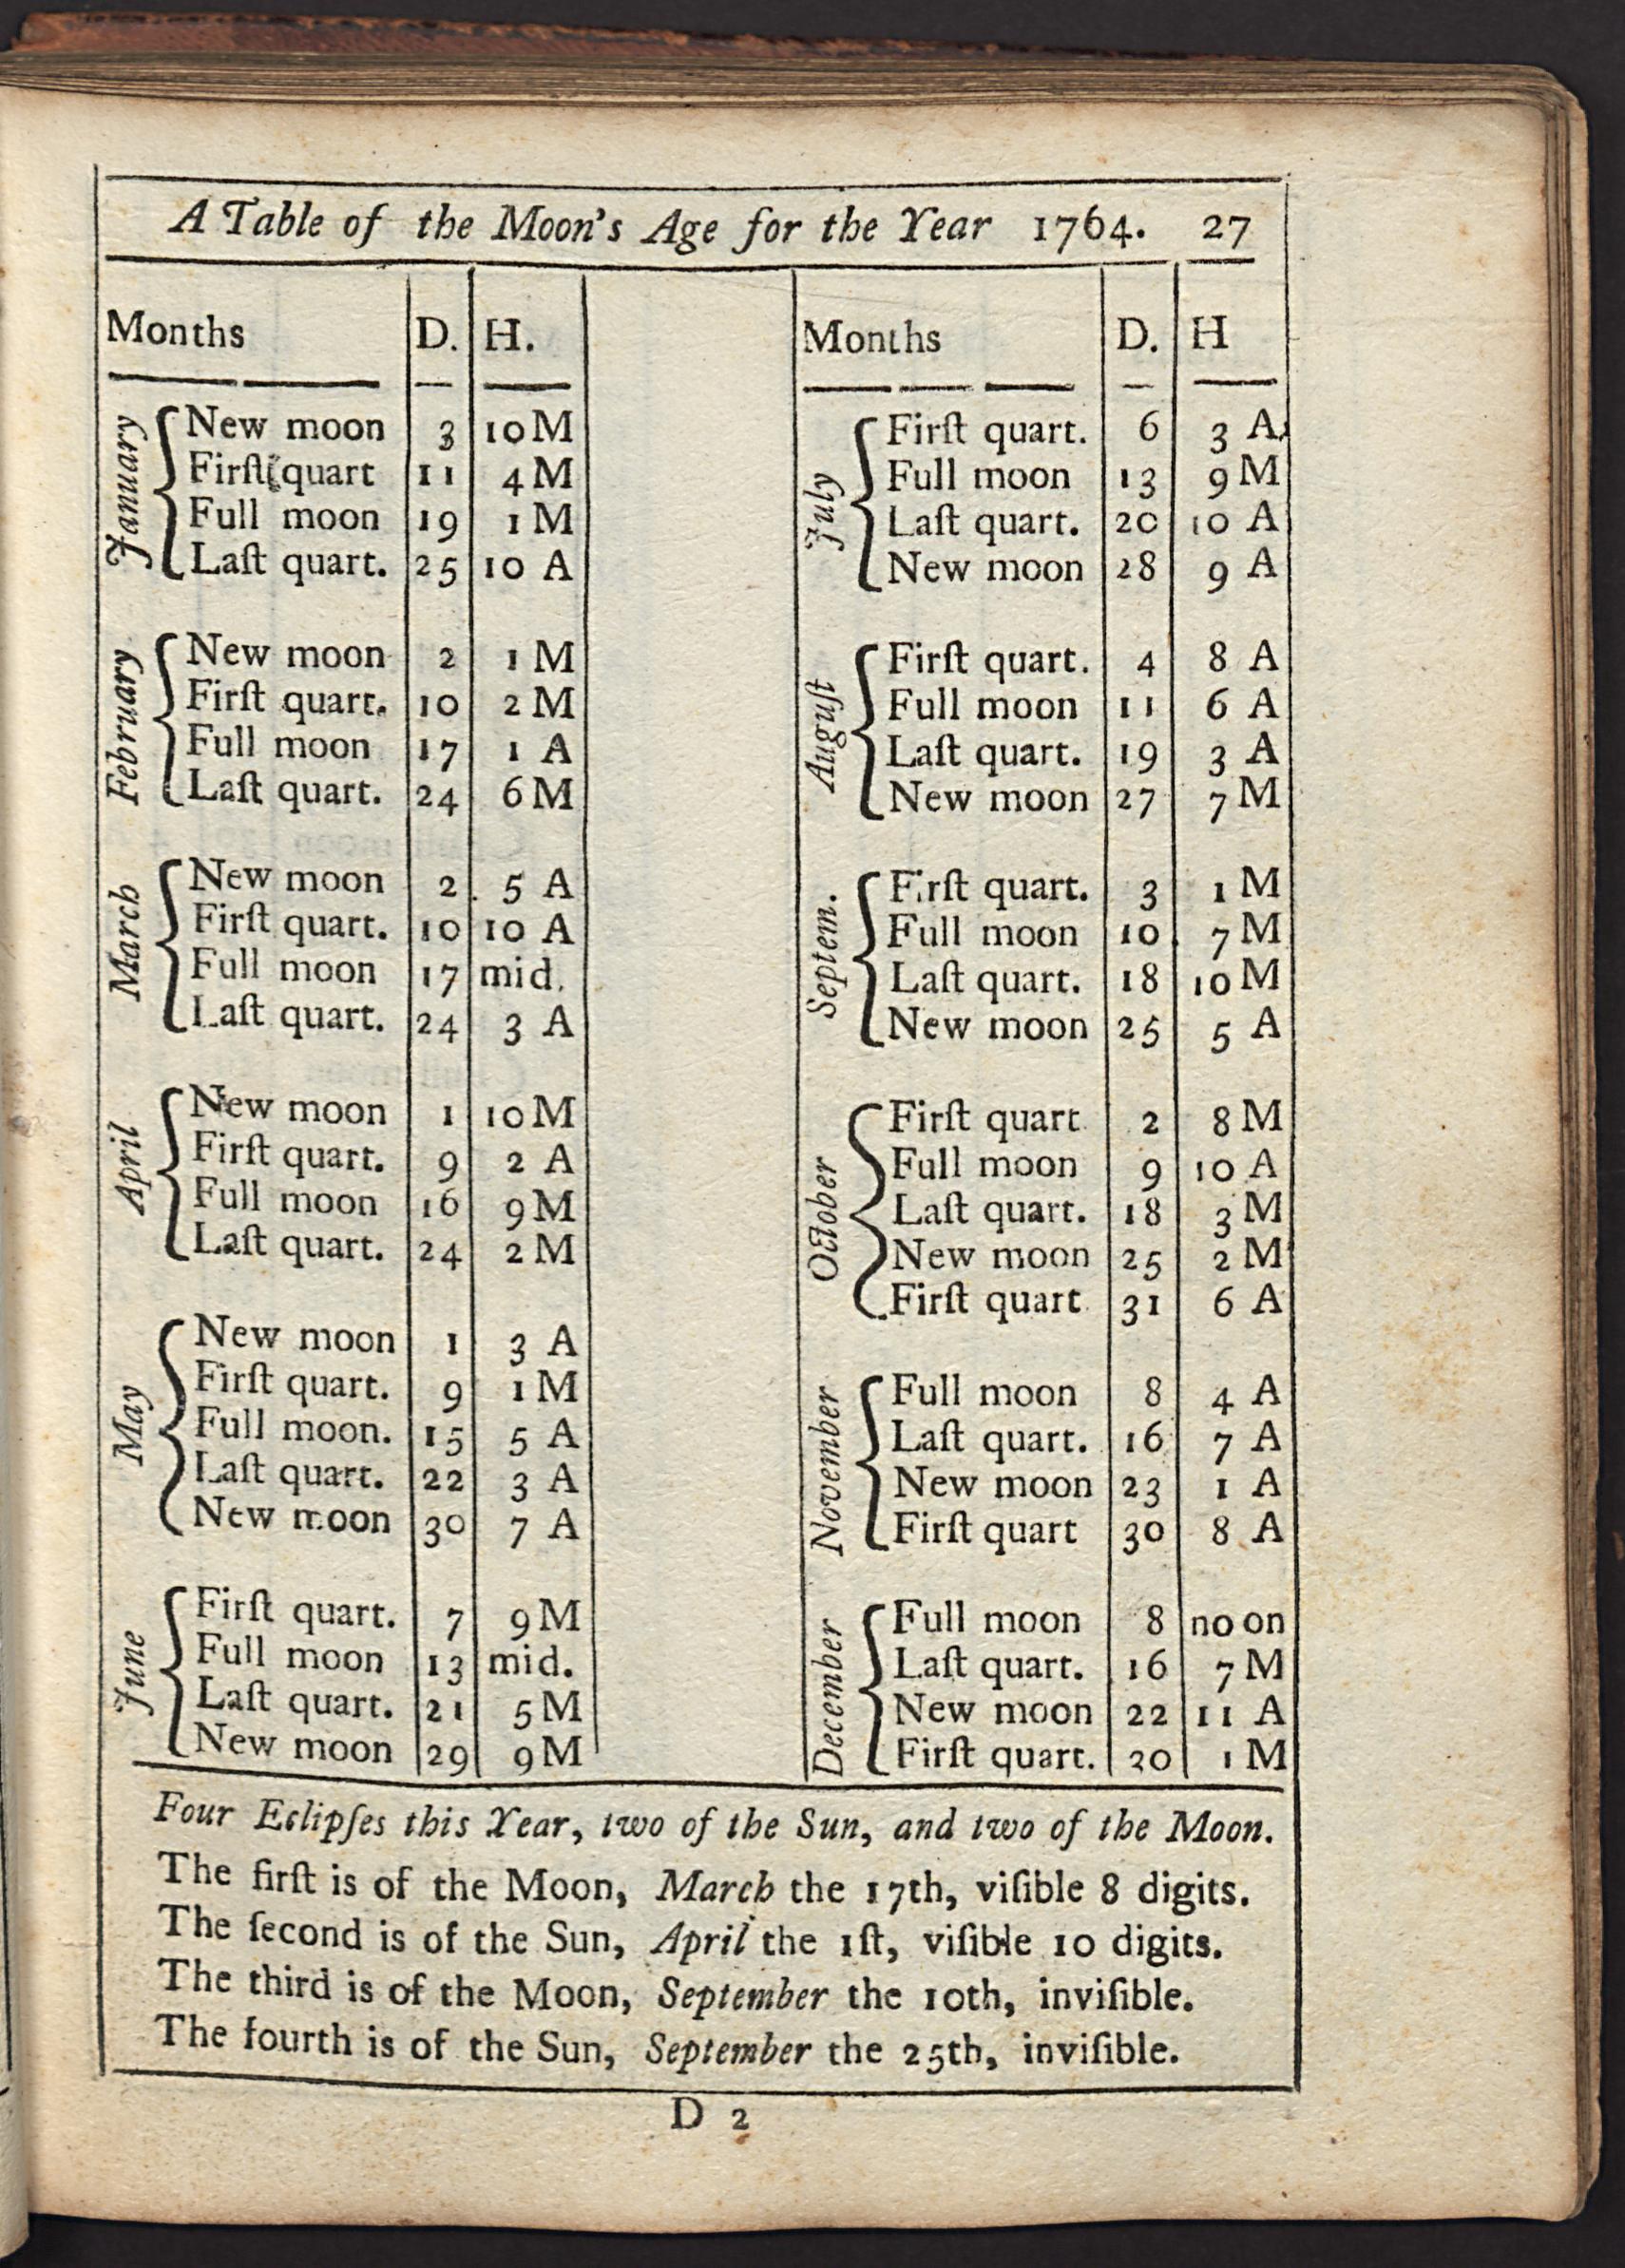 A Table of the Moon's Age for the Year 1764. 27
Months D. H.
January
New moon 3 10 M
Firſt quart 11 4 M
Full moon 19 1 M
Laſt quart. 25 10 A
February
New moon 2 1 M
Firſt quart. 10 2 M
Full moon 17 1 A
Laſt quart. 24 6 M
March
New moon 2 5 A
Firſt quart. 10 10 A
Full moon 17 mid.
Laſt quart. 24 3 A
April
New moon 1 10 M
Firſt quart. 9 2 A
Full moon 16 9 M
Laſt quart. 24 2 M
May
New moon 1 3 A
Firſt quart. 9 1 M
Full moon. 15 5 A
Laſt quart. 22 3 A
New moon 30 7 A
June
Firſt quart. 7 9 M
Full moon 13 mid.
Laſt quart. 21 5 M
New moon 29 9 M
Months D. H
July
Firſt quart. 6 3 A
Full moon 13 9 M
Laſt quart. 20 10 A
New moon 28 9 A
Auguſt
Firſt quart. 4 8 A
Full moon 11 6 A
Laſt quart. 19 3 A
New moon 27 7 M
Septem.
Firſt quart. 3 1 M
Full moon 10 7 M
Laſt quart. 18 10 M
New moon 25 5 A
October
Firſt quart 2 8 M
Full moon 9 10 A
Laſt quart. 18 3 M
New moon 25 2 M
Firſt quart 31 6 A
November
Full moon 8 4 A
Laſt quart. 16 7 A
New moon 23 1 A
Firſt quart 30 8 A
December
Full moon 8 noon
Laſt quart. 16 7 M
New moon 22 11 A
Firſt quart. 30 1 M
Four Eclipſes this Year, two of the Sun, and two of the Moon.
The firſt is of the Moon, March the 17th, viſible 8 digits.
The ſecond is of the Sun, April the 1ſt, viſible 10 digits.
The third is of the Moon, September the 10th, inviſible.
The fourth is of the Sun, September the 25th, inviſible.
D 2